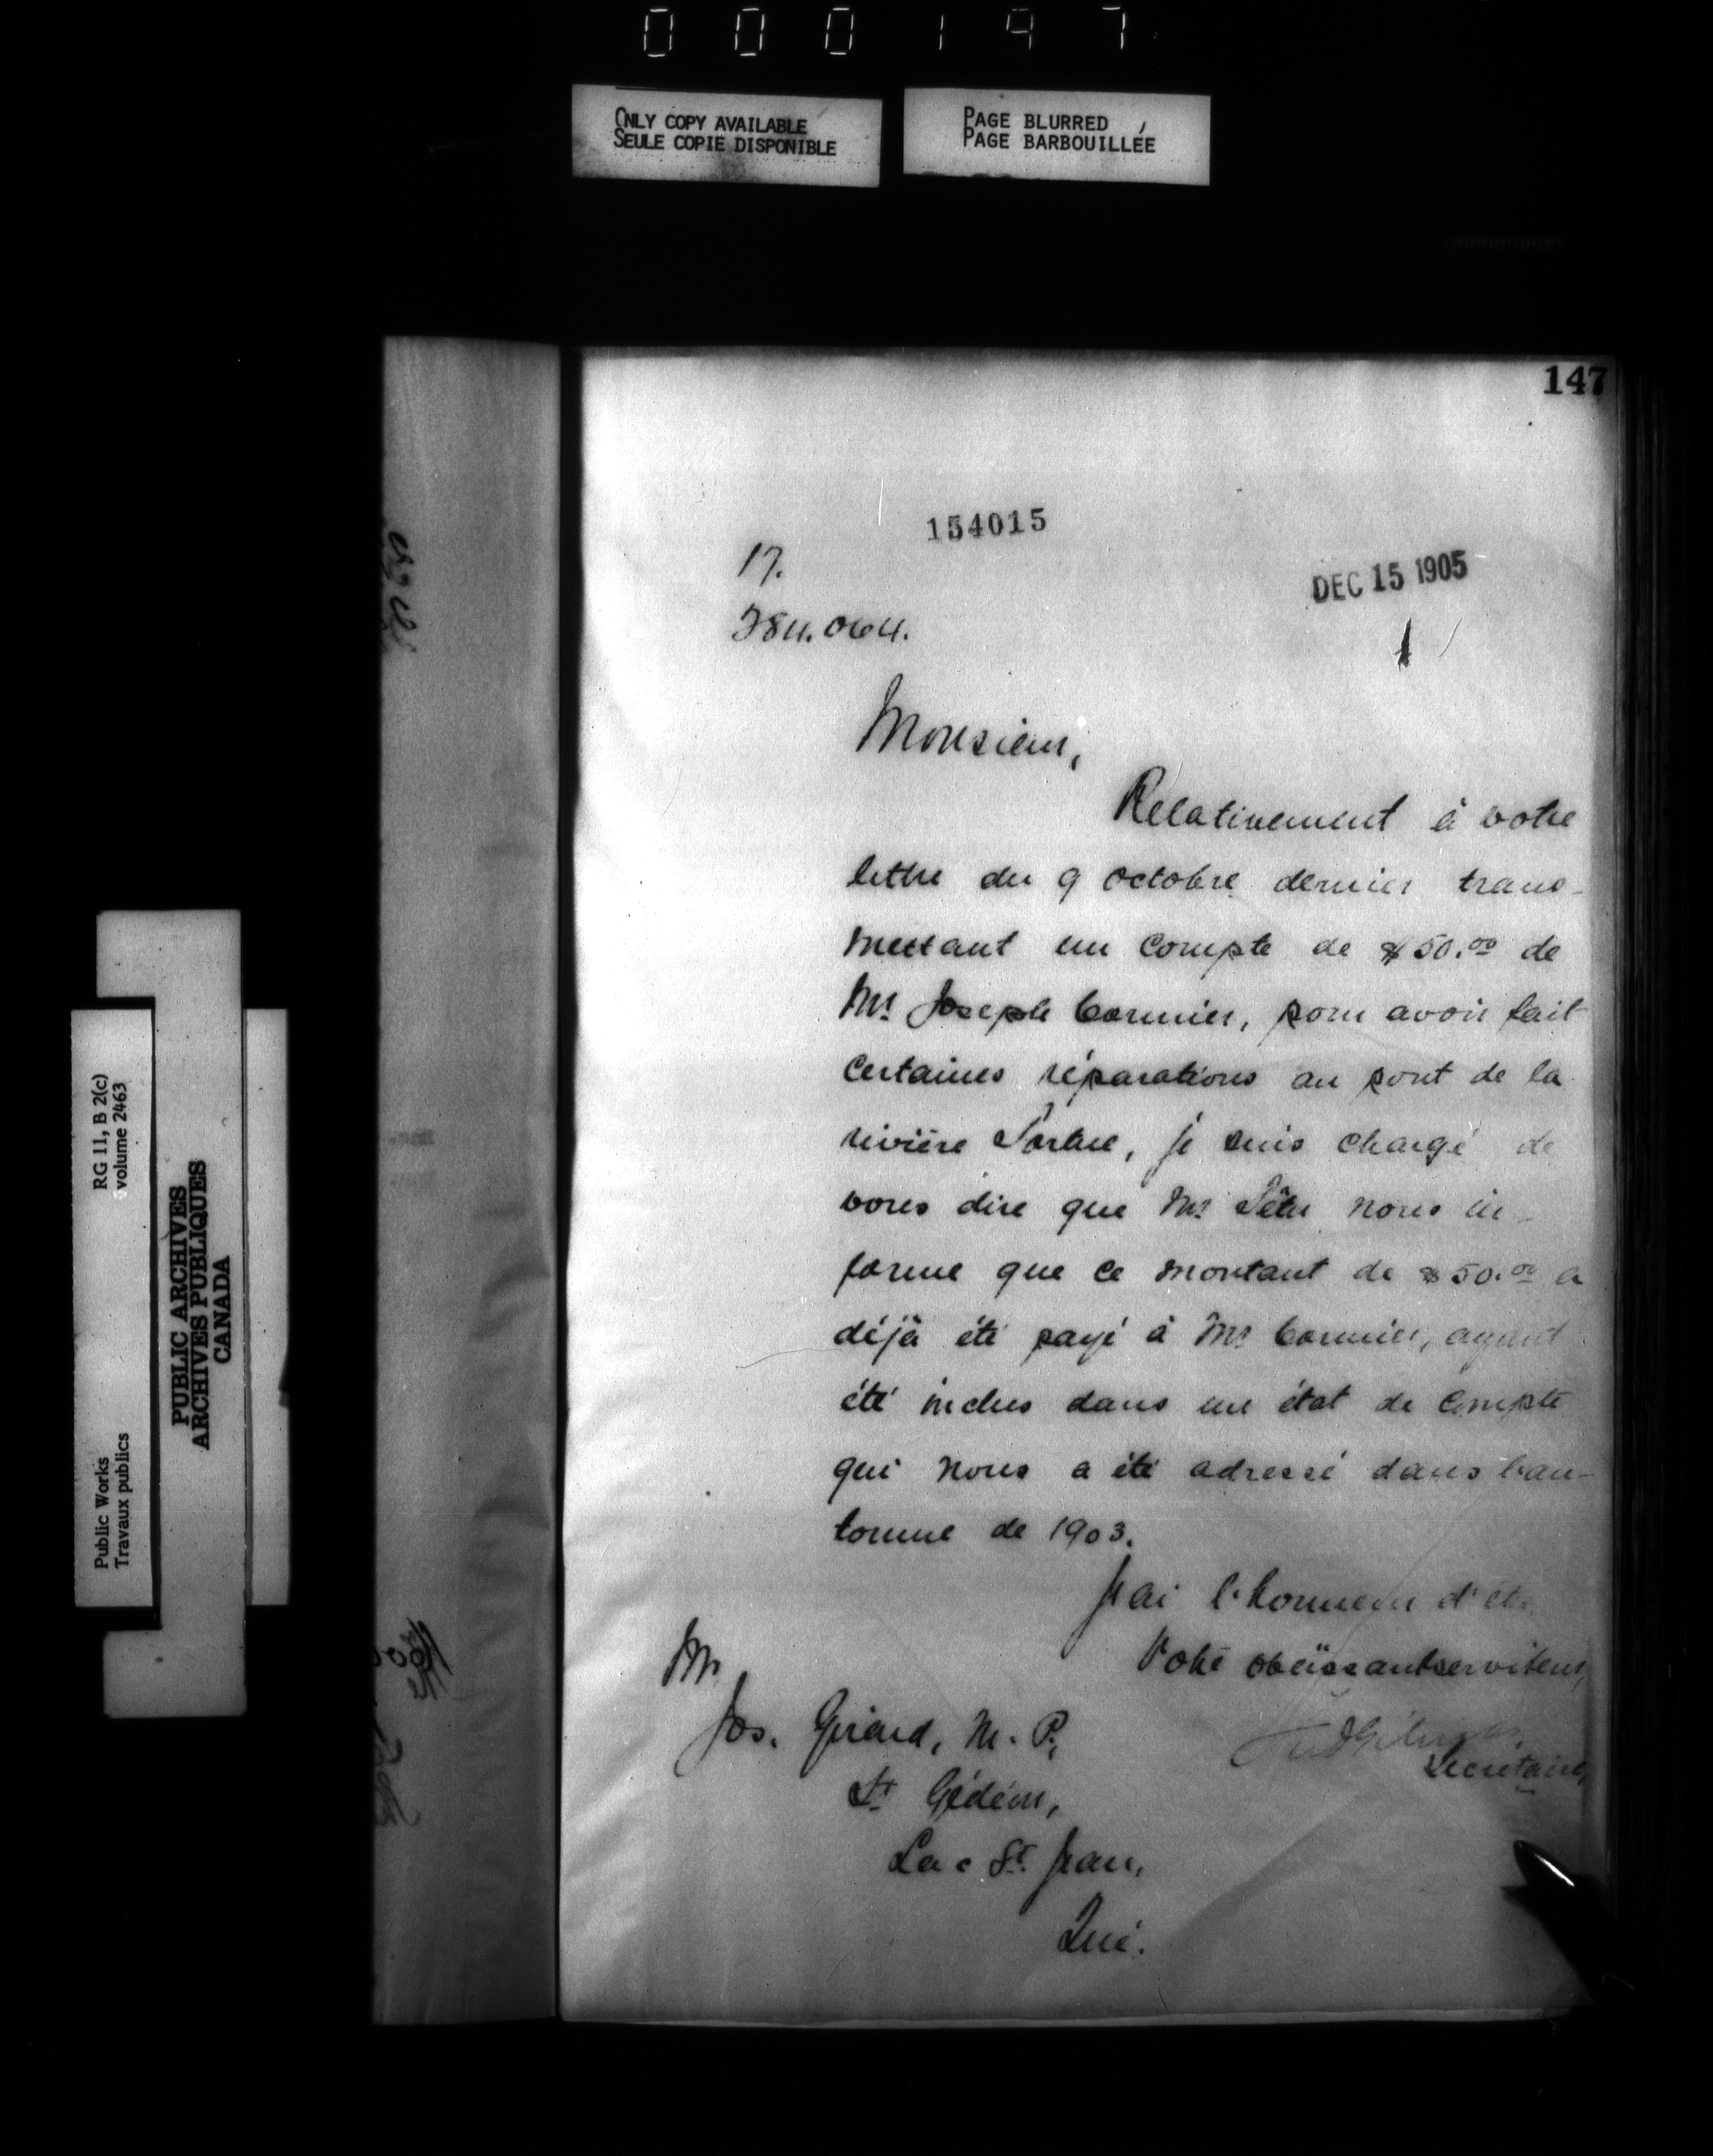 000147
ONLY COPY AVAILABLE
SEULE COPIE DISPONIBLE
PAGE BLURRED
PAGE BARBOUILLÉE
147
154015
17.
DEC 15 1905
284.064.
Monsieur,
Relativement à votre
lettre du 9 octobre dernier trans-
mettant un compte de $50.00 de
Mr Joseph Cormier, pour avoir fait
certaines réparations au pont de la
rivière, je suis chargé de
vous dire que Mr nous in-
forme que ce montant de $50.00 a
déjà été payé à Mr Cormier, ayant
été inclus dans un état de compte
qui nous a été adressé dans l'au-
tomne de 1903.
J'ai l'honneur d'être
Votre obéissant serviteur,
Mr
Jos. Girard, M. P.,
Secrétaire,
St Gédéon,
Lac St. Jean,
Qué.
RG 11, B 2(c)
volume 2463
PUBLIC ARCHIVES
ARCHIVES PUBLIQUES
CANADA
Public Works
Travaux publics